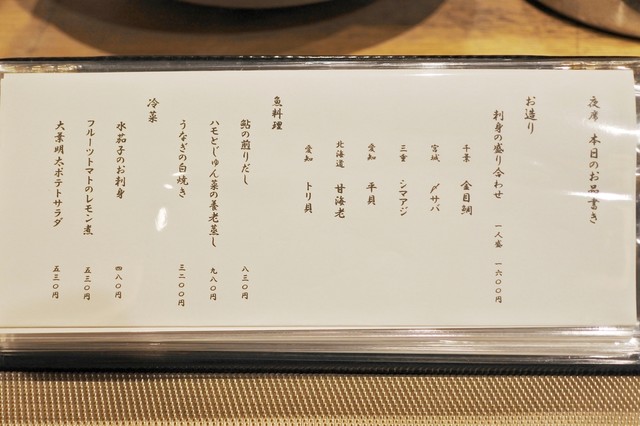 夜席　本日のお品書き
お造り
刺身の盛り合わせ　一人盛　一六〇〇円
千葉　金目鯛
宮城　〆サバ
三重　シマアジ
愛知　平貝
北海道　甘海老
愛知　トリ貝
魚料理
鮎の煎りだし　八三〇円
ハモとじゅん菜の養老蒸し　九八〇円
うなぎの白焼き　三二〇〇円
冷菜
水茄子のお刺身　四八〇円
フルーツトマトのレモン煮　五三〇円
大葉明太ポテトサラダ　五三〇円